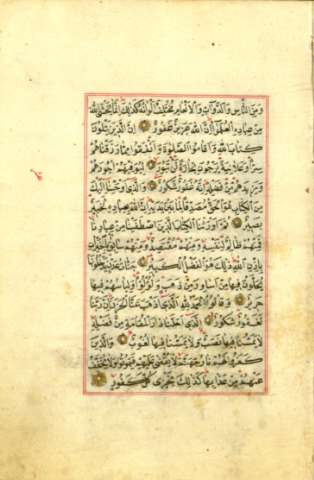 ومن الناس والدواب والانعام مختلف الوانه كذلك انما يخشى الله
من عباده العلماء ان الله عزيز غفور ان الذين يتلون
كتاب الله واقاموا الصلوة وانفقوا مما رزقناهم
سرا وعلانية يرجون تجارة لن تبور ليوفيهم اجورهم
ويزيدهم من فضله انه غفور شكور والذي اوحينا اليك
من الكتاب هو الحق مصدقا لما بين يديه ان الله بعباده لخبير
بصير ثم اورثنا الكتاب الذين اصطفينا من عبادنا
فمنهم ظالم لنفسه ومنهم مقتصد ومنهم سابق بالخيرات
باذن الله ذلك هو الفضل الكبير جنات عدن يدخلونها
يحلون فيها من اساور من ذهب ولؤلؤا ولباسهم فيها
حرير وقالوا الحمد لله الذي اذهب عنا الحزن ان ربنا
لغفور شكور الذي احلنا دار المقامة من فضله
لا يمسنا فيها نصب ولا يمسنا فيها لغوب والذين
كفروا لهم نار جهنم لا يقضى عليهم فيموتوا ولا يخفف
عنهم من عذابها كذلك نجزي كل كفور